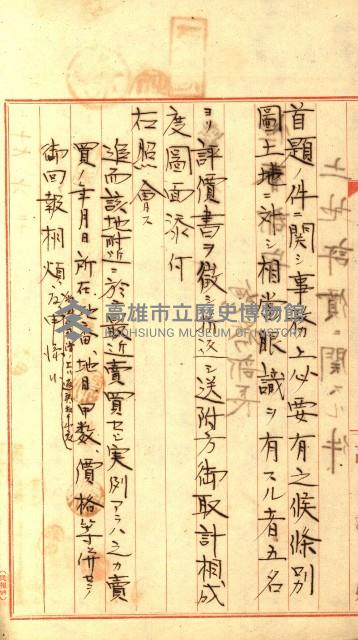 首題ノ件ニ関シ事務上必要有之候條別
圖土地ニ対シ相當眼識ヲ有スル者五名
ヨリ評價書ヲ徴シ 送附方御取計相成
度圖面添付
右照會ス
追而該地附近ニ於テ最近賣買セシ実例アラハ之カ賣
買ノ年月日所在地番、地目甲数、價格等併セテ
御回報相煩度
高雄市立歷史博物館
KAOHSIUNG MUSEUM OF HISTORY